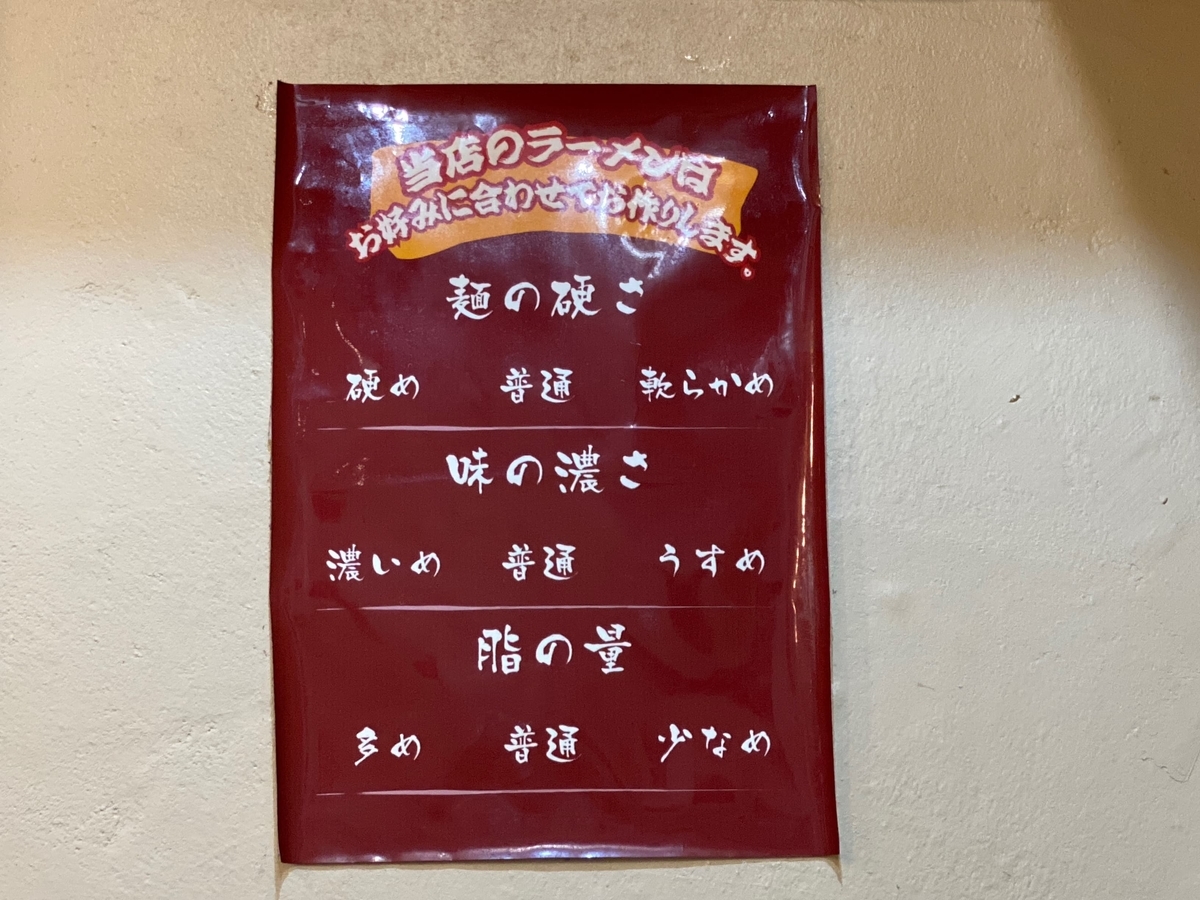 当店のラーメンは
お好みに合わせてお作りします。
麺の硬さ
硬め 普通 軟らかめ
味の濃さ
濃いめ 普通 うすめ
脂の量
多め 普通 少なめ